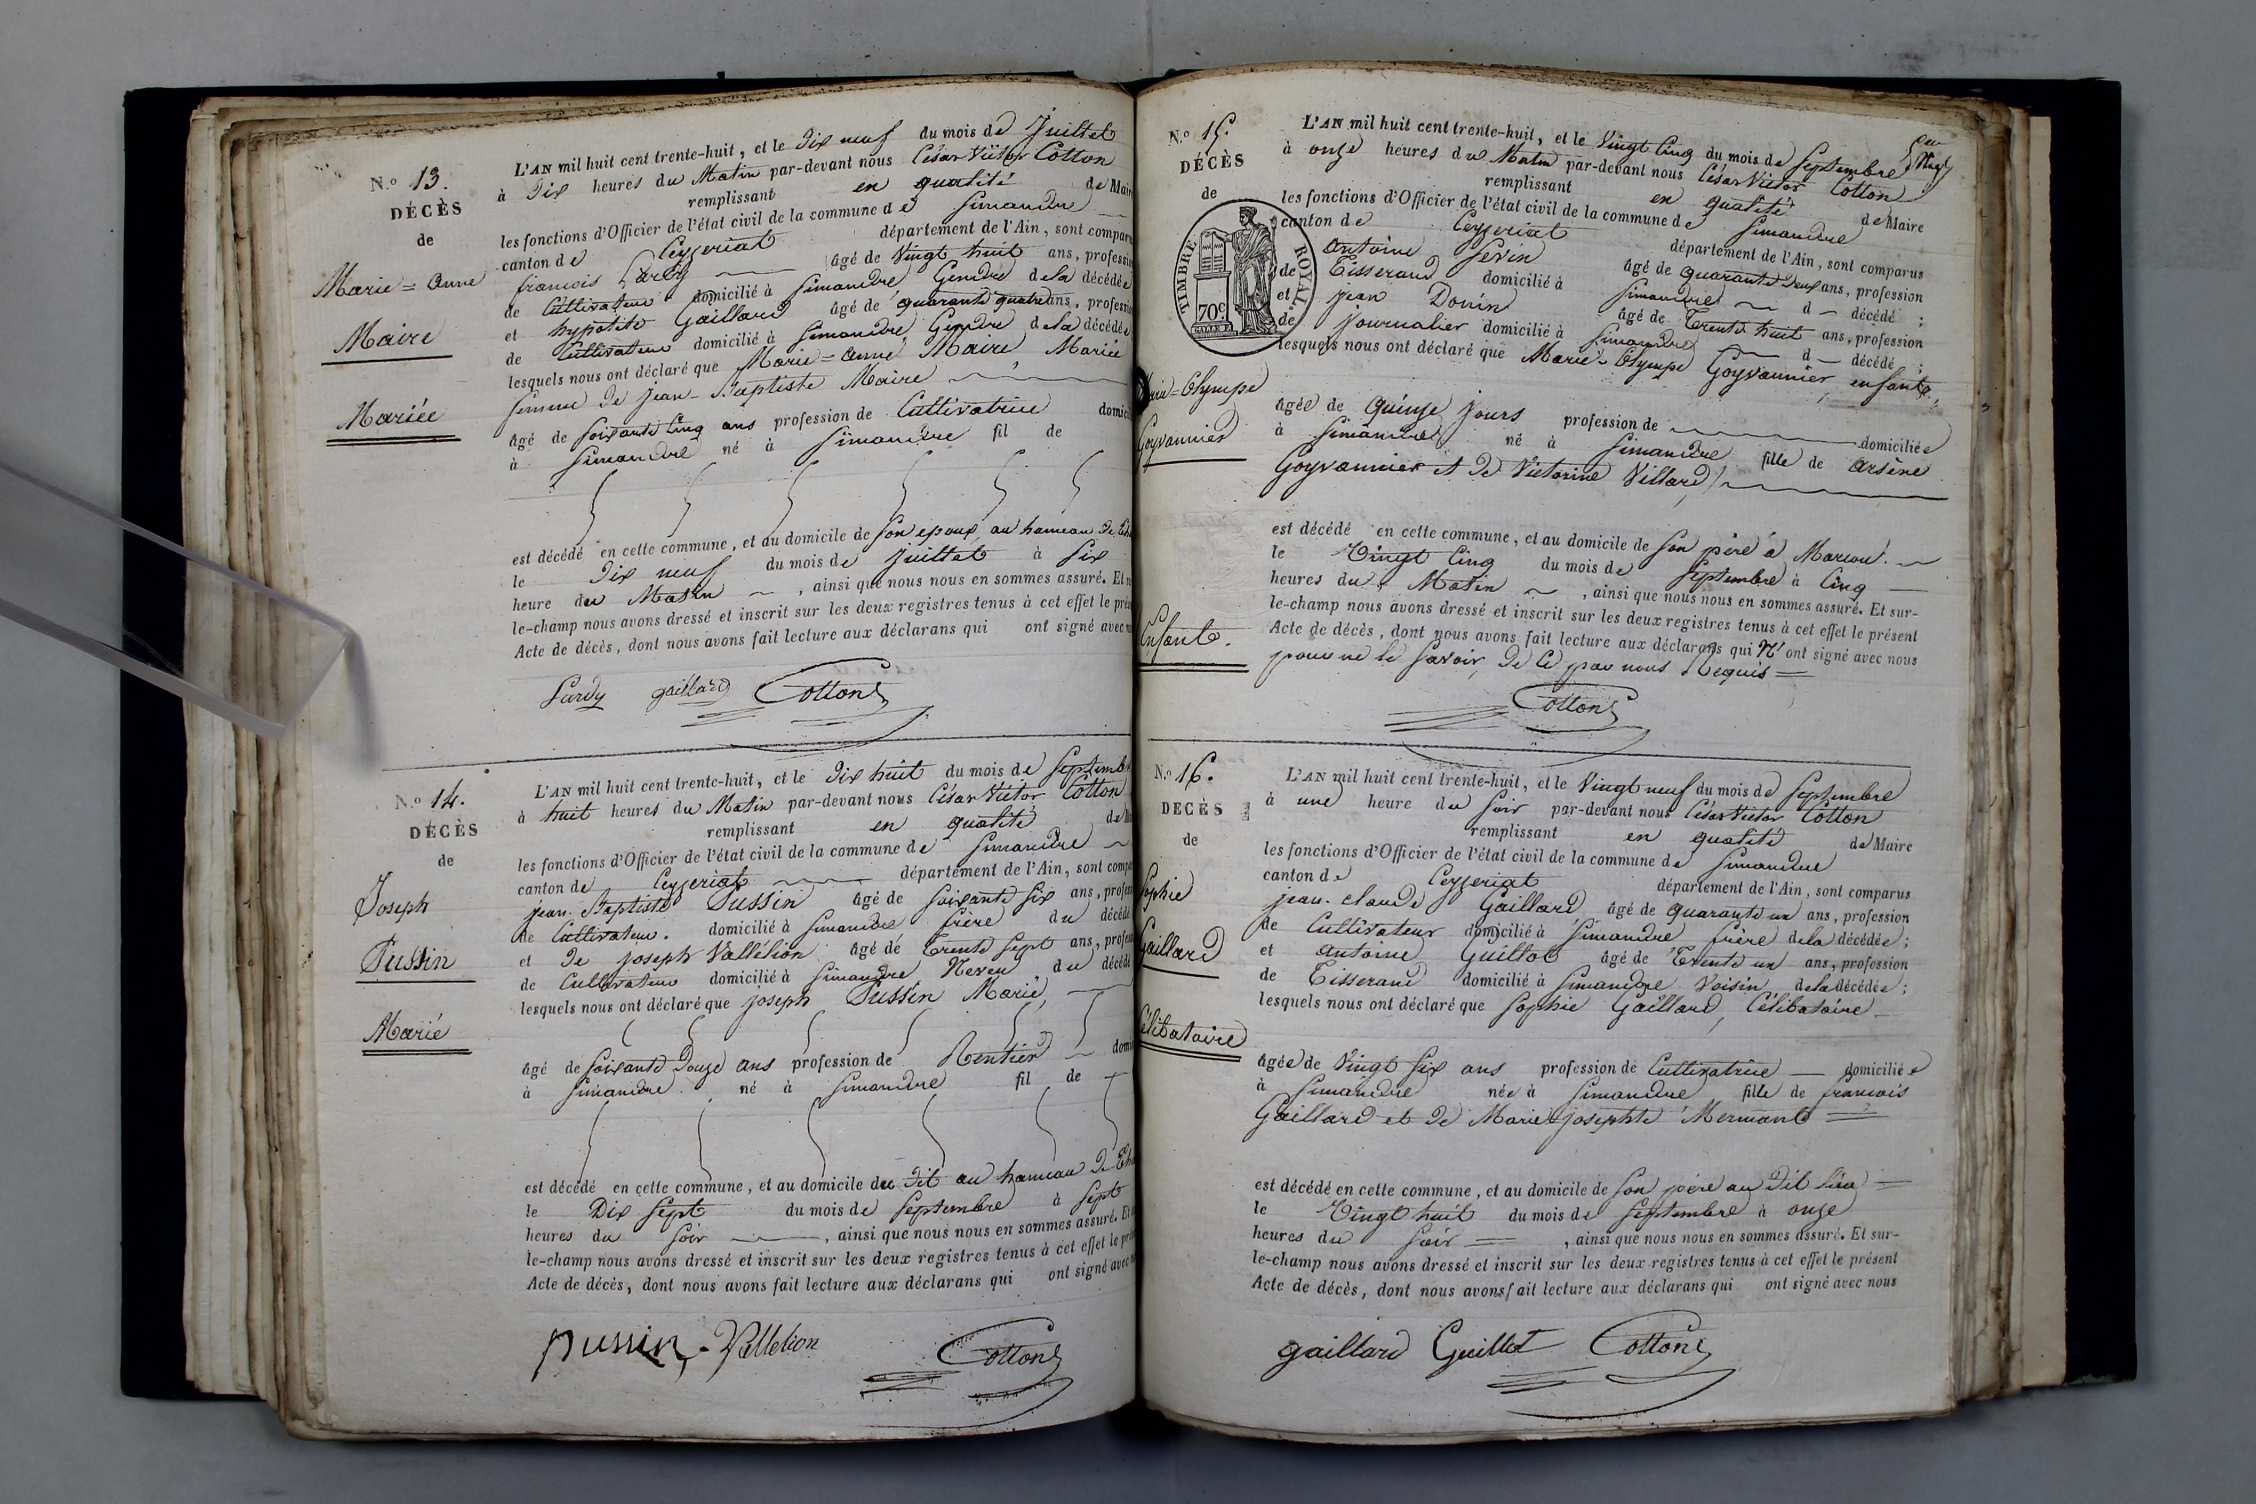 N.º 13.
DÉCÈS
de
Marie = Anne
Maire
Mariée
L'AN mil huit cent trente-huit, et le Dix neuf du mois de Juillet
à Dix heures du Matin par-devant nous César Victor Cotton
remplissant en qualité de Mair
les fonctions d'Officier de l'état civil de la commune de Simandre
canton de Ceyzeriat département de l'Ain, sont compar
francois Lardy âgé de Vingt huit ans, professi
de Cultivateur domicilié à Simandre Gendre de la décédée
et hypolite Gaillard âgé de quarante quatre ans, professi
de Cultivateur domicilié à Simandre Gendre de la décédée
lesquels nous ont déclaré que Marie = Anne Maire Mariée
femme de jean-Baptiste Maire
âgé de soixante Cinq ans profession de Cultivatrice domici
à Simandre né à Simandre fil de
est décédé en cette commune, et au domicile de son epoux, au hameau de
le Dix neuf du mois de Juillet à Six
heure du Matin , ainsi que nous nous en sommes assuré. Et
le-champ nous avons dressé et inscrit sur les deux registres tenus à cet effet le pré
Acte de décès, dont nous avons fait lecture aux déclarans qui ont signé avec
Lardy gaillard Cotton
N.º 14.
DÉCÈS
de
Joseph
Pussin
Marié
L'AN mil huit cent trente-huit, et le Dix huit du mois de Septemb
à huit heures du Matin par-devant nous César Victor Cotton
remplissant en qualité de M
les fonctions d'Officier de l'état civil de la commune de Simandre
canton de Ceyzeriat département de l'Ain, sont compa
jean-Baptiste Pussin âgé de soixante six ans, profes
de Cultivateur. domicilié à Simandre frère du décédé
et de joseph Vallélion âgé de Trente sept ans, profes
de Cultivateur domicilié à Simandre Neveu du décédé
lesquels nous ont déclaré que joseph Pussin Marié,
âgé de soixante Douze ans profession de Rentier domi
à Simandre né à Simandre fil de
est décédé en cette commune, et au domicile du dit au hameau de
le Dix sept du mois de Septembre à Sept
heures du Soir , ainsi que nous nous en sommes assuré. Et
le-champ nous avons dressé et inscrit sur les deux registres tenus à cet effet le pré
Acte de décès, dont nous avons fait lecture aux déclarans qui ont signé avec
pussin Vallelion Cotton
N.º 15.
DÉCÈS
de
TIMBRE ROYAL
70 c
Marie = Olympe
Goyvannier
Enfant.
L'AN mil huit cent trente-huit, et le Vingt Cinq du mois de Septembre
à onze heures du Matin par-devant nous César Victor Cotton
remplissant en qualité de Maire
les fonctions d'Officier de l'état civil de la commune de Simandre
canton de Ceyzeriat département de l'Ain, sont comparus
Antoine Sevin âgé de quarante deux ans, profession
de Tisserand domicilié à Simandre d décédé ;
et jean Donin âgé de Trente huit ans, profession
de Journalier domicilié à Simandre d décédé ;
lesquels nous ont déclaré que Marie-Olympe Goyvannier, enfant,
âgée de Quinze jours profession de domiciliée
à Simandre né à Simandre fille de Arsène
Goyvannier et de Victorine Villard
est décédé en cette commune, et au domicile de son père à
le Vingt Cinq du mois de Septembre à Cinq
heures du Matin , ainsi que nous nous en sommes assuré. Et sur-
le-champ nous avons dressé et inscrit sur les deux registres tenus à cet effet le présent
Acte de décès, dont nous avons fait lecture aux déclarans qui N'ont signé avec nous
pour ne le savoir, de ce par nous Requis
Cotton
N.º 16.
DÉCÈS
de
Sophie
Gaillard
Célibataire
L'AN mil huit cent trente-huit, et le Vingt neuf du mois de Septembre
à une heure du soir par-devant nous César Victor Cotton
remplissant en qualité de Maire
les fonctions d'Officier de l'état civil de la commune de Simandre
canton de Ceyzeriat département de l'Ain, sont comparus
jean-claude Gaillard âgé de quarante un ans, profession
de Cultivateur domicilié à Simandre frère de la décédée ;
et Antoine Guillot âgé de Trente un ans, profession
de Tisserand domicilié à Simandre Voisin de la décédée ;
lesquels nous ont déclaré que Sophie Gaillard, Célibataire
âgée de Vingt Six ans profession de Cultivatrice domiciliée
à Simandre née à Simandre fille de francois
Gaillard et de Marie-josephte Mermant
est décédé en cette commune, et au domicile de son père au dit lieu
le Vingt huit du mois de Septembre à onze
heures du soir , ainsi que nous nous en sommes assuré. Et sur-
le-champ nous avons dressé et inscrit sur les deux registres tenus à cet effet le présent
Acte de décès, dont nous avons fait lecture aux déclarans qui ont signé avec nous
gaillard Guillot Cotton